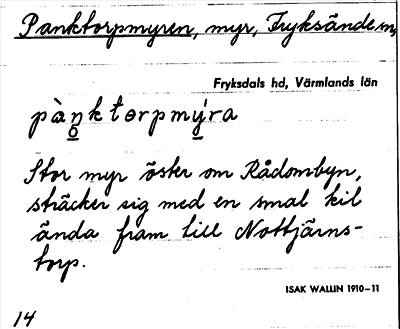 Panktorpmyren, myr, Fryksände sn,
Fryksdals hd, Värmlands län
pàŋktorpmýra
Stor myr öster om Rådombyn,
sträcker sig med en smal kil
ända fram till Nottjärns-
torp.
ISAK WALLIN 1910–11
14